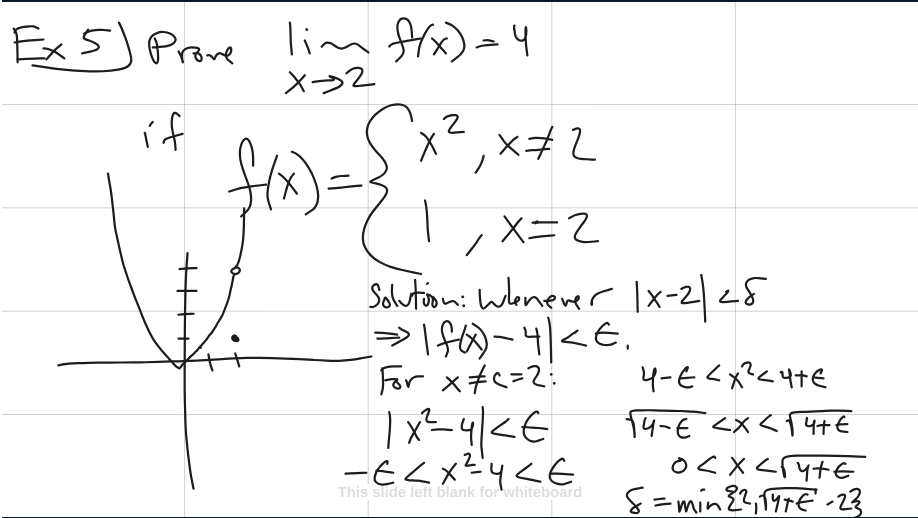 Ex 5) Prove lim f(x) = 4
x→2
if
f(x) = { x² , x ≠ 2
1 , x = 2
Solution: Whenever |x-2| < δ
⇒ |f(x) - 4| < ϵ.
For x ≠ c = 2:
|x² - 4| < ϵ
-ϵ < x² - 4 < ϵ
4-ϵ < x² < 4+ϵ
√(4-ϵ) < x < √(4+ϵ)
0 < x < √(4+ϵ)
δ = min{2, √(4+ϵ) - 2}
This slide left blank for whiteboard